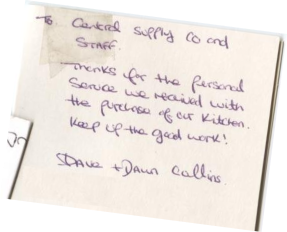 To: Central Supply Co and
Staff.
Thanks for the personal
Service we received with
the purchase of our Kitchen.
Keep up the good work!
Dave + Dawn Collins.